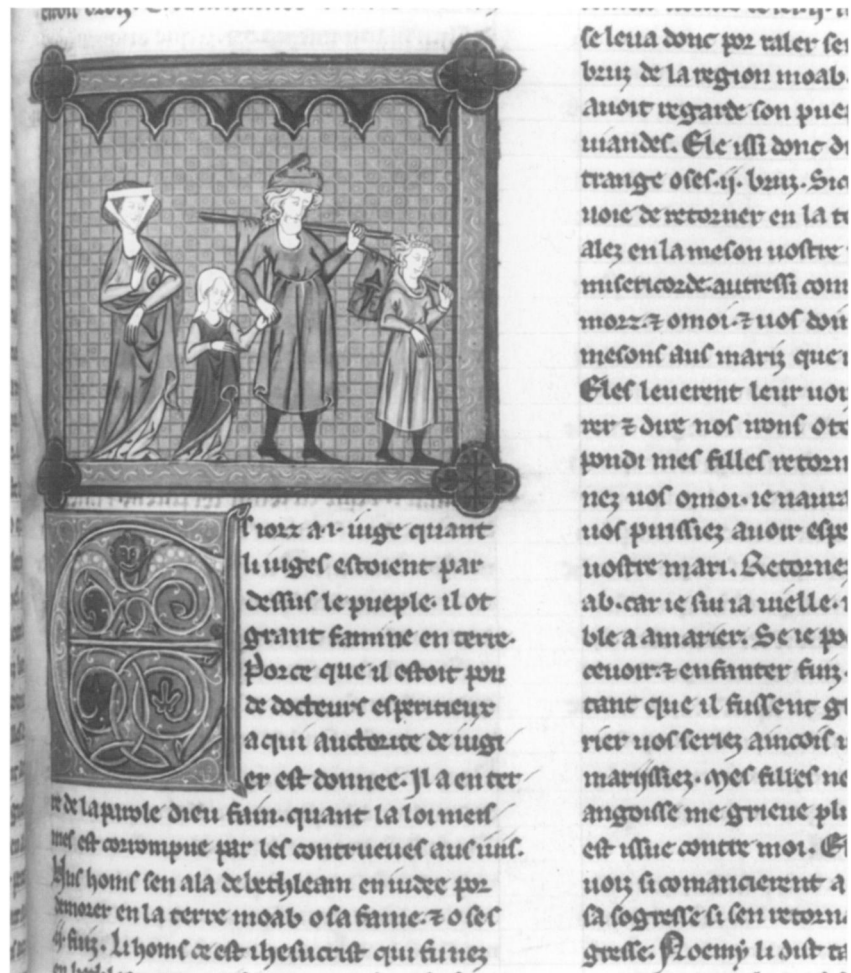 s iorz a .i. iuge quant
li iuges estoient par
dessus le pueple. il ot
grant famine en terre.
Porce que il estoit pou
de docteurs esperitieux
a qui auctorite de iugi
er est donnee. Il a en ter
re de la parole dieu fain. quant la loi meis
mes est corrompue par les contrueues aus iuis.
Uns homs sen ala de bethleam en iudee por
demorer en la terre moab o sa fame. ⁊ o ses
.ij. fiuz. Li homs ce est ihesucrist qui fu nez
se leua donc por raler
bruz de la region moab.
auoit regarde son
uiandes. Ele issi donc
trange o ses .ij. bruz.
uoie de retorner en la
alez en la meson uostre
misericorde. autressi com
morz. ⁊ o moi. ⁊ uos
mesons aus mariz que
Eles leuerent leur
rer ⁊ dire nos irons
pondi mes filles
nez uos o moi. ie
uos puissiez auoir
uostre mari.
ab. car ie sui ia uielle.
ble a amarier. Se ie
ceuoir. ⁊ enfanter fiuz.
tant que il fussent
rier uos seriez aincois
mariissiez. Mes filles ne
angoisse me grieue
est issue contre moi.
uoiz si comancierent a
sa sogresse si sen
gresse. Noemy li dist